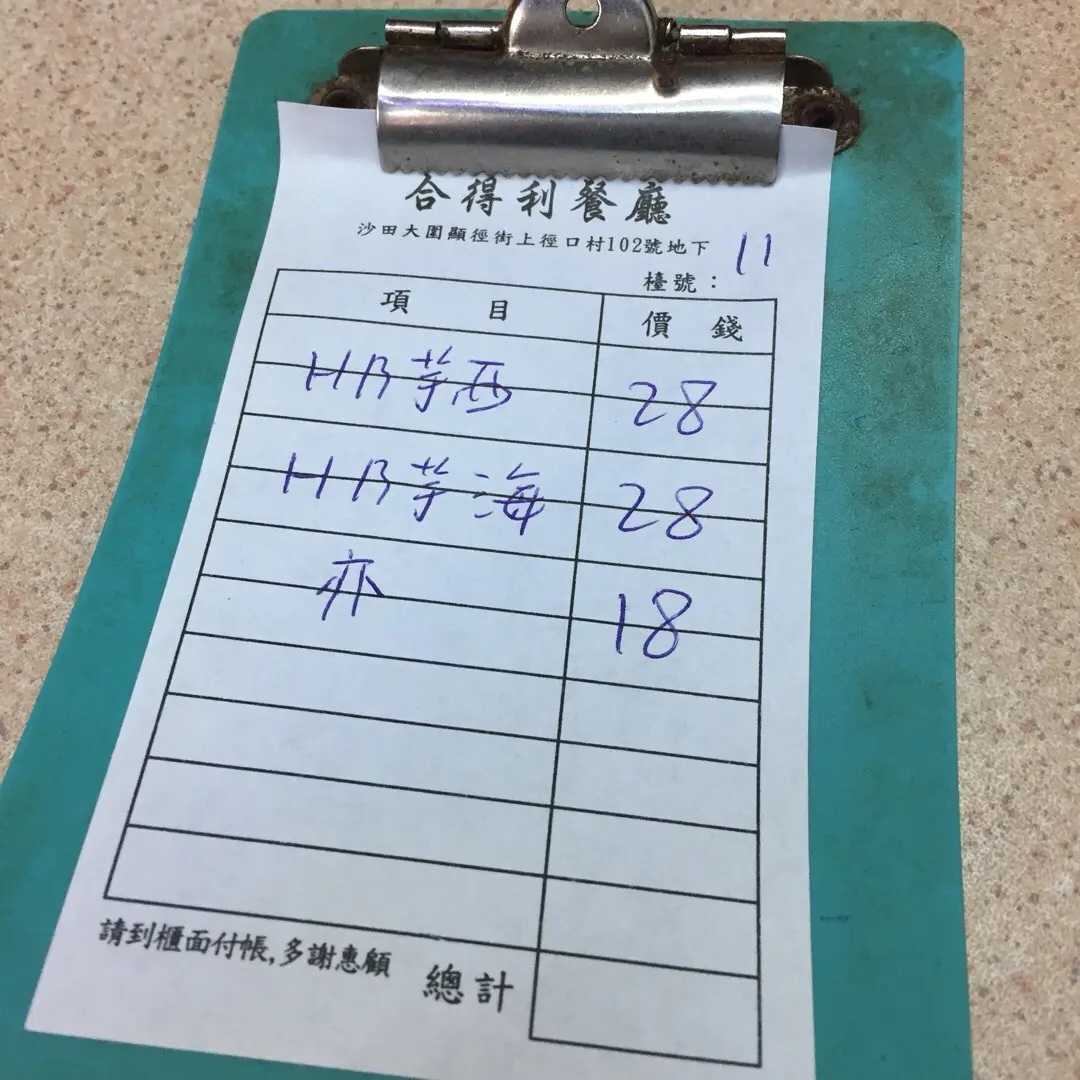 合得利餐廳
沙田大圍顯徑街上徑口村102號地下
檯號： 11
項 目 價 錢
HB芋西 28
HB芋海 28
亦 18
請到櫃面付帳,多謝惠顧 總計